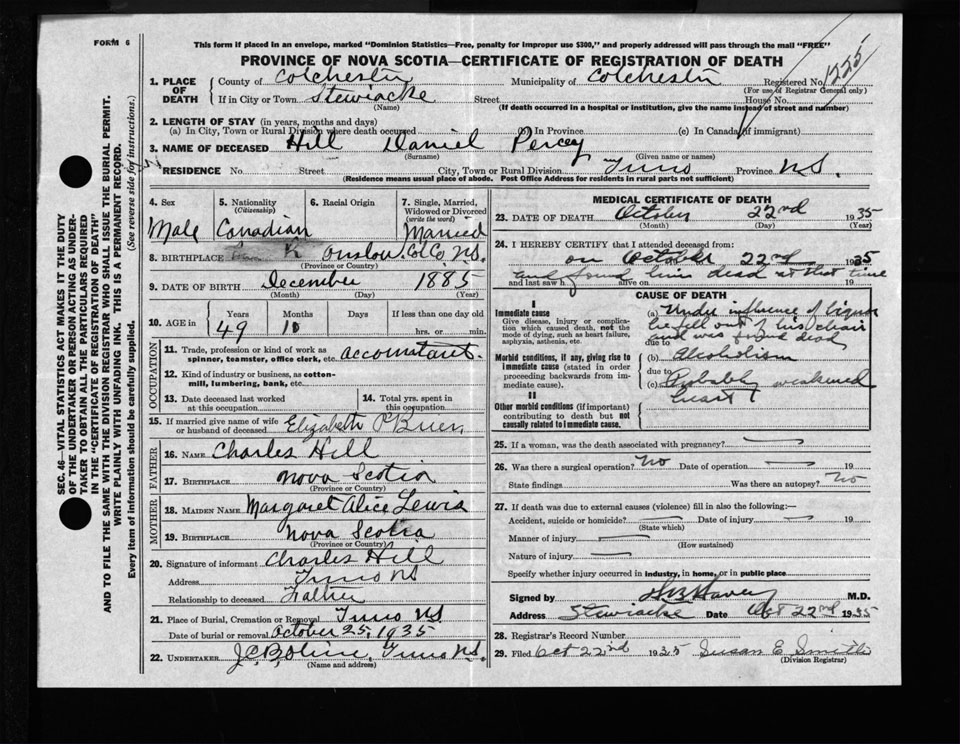 FORM 6
This form if placed in an envelope, marked "Dominion Statistics—Free, penalty for improper use $300," and properly addressed will pass through the mail "FREE"
PROVINCE OF NOVA SCOTIA—CERTIFICATE OF REGISTRATION OF DEATH
1225
1. PLACE OF DEATH County of Colchester Municipality of Colchester Registered No.
(For use of Registrar General only)
If in City or Town Stewiacke Street House No.
(Name) (If death occurred in a hospital or institution, give the name instead of street and number)
2. LENGTH OF STAY (in years, months and days)
(a) In City, Town or Rural Division where death occurred (b) In Province (c) In Canada (if immigrant)
3. NAME OF DECEASED Hill Daniel Percey
(Surname) (Given name or names)
RESIDENCE No. Street City, Town or Rural Division Truro Province N.S.
(Residence means usual place of abode. Post Office Address for residents in rural parts not sufficient)
4. Sex Male
5. Nationality (Citizenship) Canadian
6. Racial Origin
7. Single, Married, Widowed or Divorced (write the word) Married
8. BIRTHPLACE Onslow Col. Co. N.S.
(Province or Country)
9. DATE OF BIRTH December 1885
(Month) (Day) (Year)
10. AGE in Years Months Days If less than one day old
49 10 hrs. or min.
OCCUPATION
11. Trade, profession or kind of work as spinner, teamster, office clerk, etc. accountant.
12. Kind of industry or business, as cotton-mill, lumbering, bank, etc.
13. Date deceased last worked at this occupation
14. Total yrs. spent in this occupation
15. If married give name of wife or husband of deceased Elizabeth O'Brien
FATHER
16. NAME Charles Hill
17. BIRTHPLACE Nova Scotia
(Province or Country)
MOTHER
18. MAIDEN NAME Margaret Alice Lewis
19. BIRTHPLACE Nova Scotia
(Province or Country)
20. Signature of informant Charles Hill
Address Truro NS
Relationship to deceased Father
21. Place of Burial, Cremation or Removal Truro N.S.
Date of burial or removal October 25, 1935
22. UNDERTAKER Truro N.S.
(Name and address)
MEDICAL CERTIFICATE OF DEATH
23. DATE OF DEATH October 22nd 1935
(Month) (Day) (Year)
24. I HEREBY CERTIFY that I attended deceased from:
on October 22nd 1935
and found him dead at that time
and last saw h alive on 19
CAUSE OF DEATH
I
Immediate cause
Give disease, injury or complication which caused death, not the mode of dying, such as heart failure, asphyxia, asthenia, etc.
(a) Under influence of liquor
he fell out of his chair
and was found dead
due to
Morbid conditions, if any, giving rise to immediate cause (stated in order proceeding backwards from immediate cause).
(b) Alcoholism
due to
(c) Probably weakened
heart
II
Other morbid conditions (if important) contributing to death but not causally related to immediate cause.
25. If a woman, was the death associated with pregnancy?
26. Was there a surgical operation? No Date of operation 19
State findings Was there an autopsy? No
27. If death was due to external causes (violence) fill in also the following:—
Accident, suicide or homicide? Date of injury 19
(State which)
Manner of injury
(How sustained)
Nature of injury
Specify whether injury occurred in industry, in home, or in public place
Signed by M.D.
Address Stewiacke Date Oct 22nd 1935
28. Registrar's Record Number
29. Filed Oct 22nd 1935 Susan E Smith
(Division Registrar)
SEC. 46—VITAL STATISTICS ACT MAKES IT THE DUTY
OF THE UNDERTAKER OR PERSON ACTING AS UNDER-
TAKER TO OBTAIN ALL THE PARTICULARS REQUIRED
IN THE "CERTIFICATE OF REGISTRATION OF DEATH"
AND TO FILE THE SAME WITH THE DIVISION REGISTRAR WHO SHALL ISSUE THE BURIAL PERMIT.
WRITE PLAINLY WITH UNFADING INK. THIS IS A PERMANENT RECORD.
Every item of information should be carefully supplied. (See reverse side for instructions.)